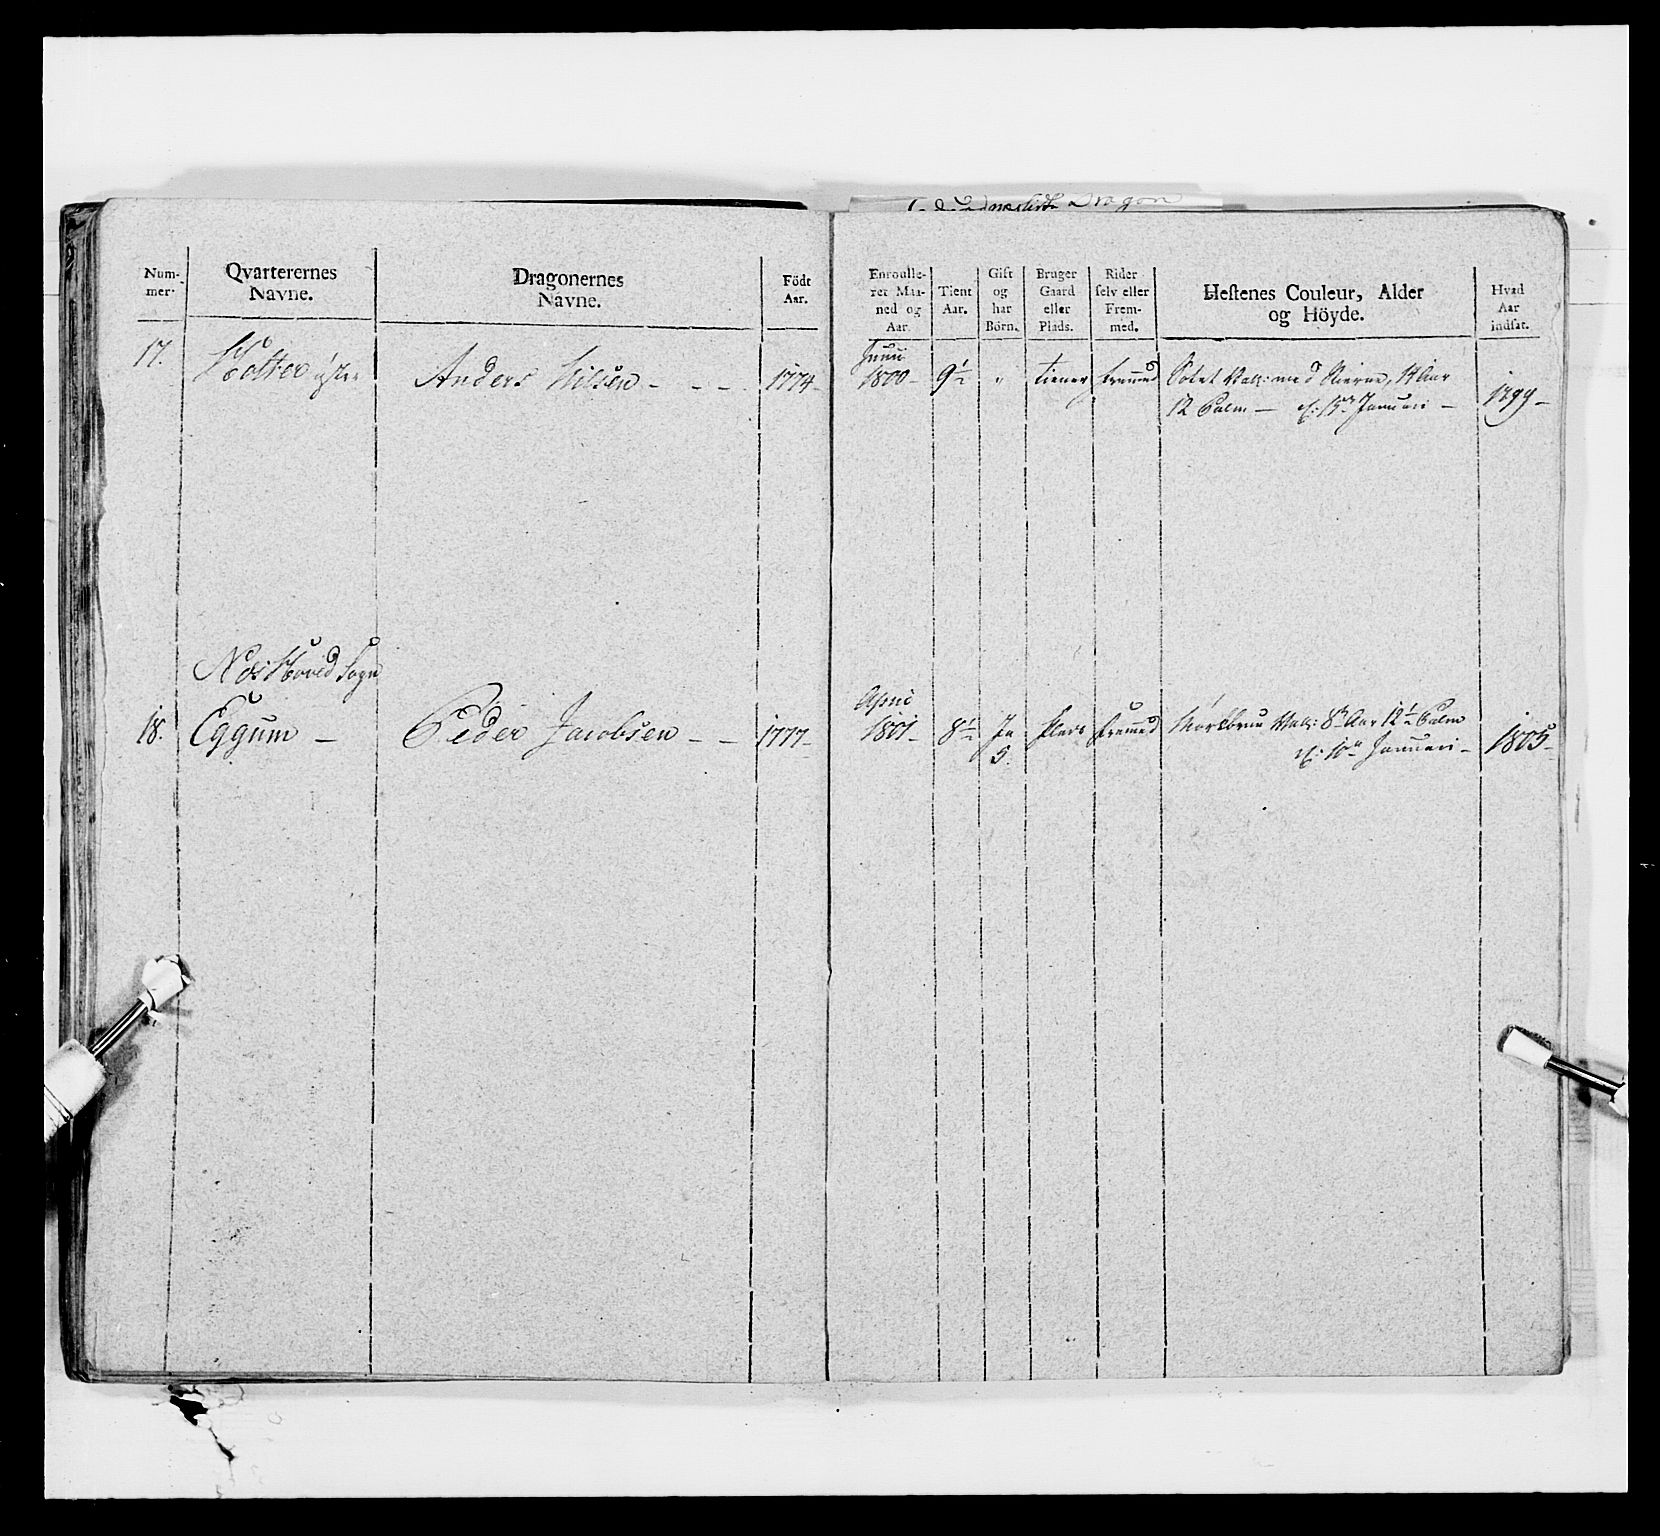 Dragon
Num-
mer.
Qvarterernes
Navne.
Dragonernes
Navne.
Födt
Aar.
Enroulle-
ret Maa-
ned og
Aar.
Tient
Aar.
Gift
og
har
Börn.
Bruger
Gaard
eller
Plads.
Rider
selv eller
Frem-
med.
Hestenes Couleur, Alder
og Höyde.
Hvad
Aar
indsat.
17. Holter Anders Nilsen - - - 1774 -
Junii
1800 - 9½ " tiener fremed
Vall: med Stierne, 14 Aar
12 Palm — Januari —
1799 -
Nes Hoved Sogn
18. Eggum — Peder Jacobsen - - 1777 -
April
1801 - 8½ Ja
5. Plads fremed
Mörkbrun Vall: 8 Aar 12½ Palm
Januari -
1805 -